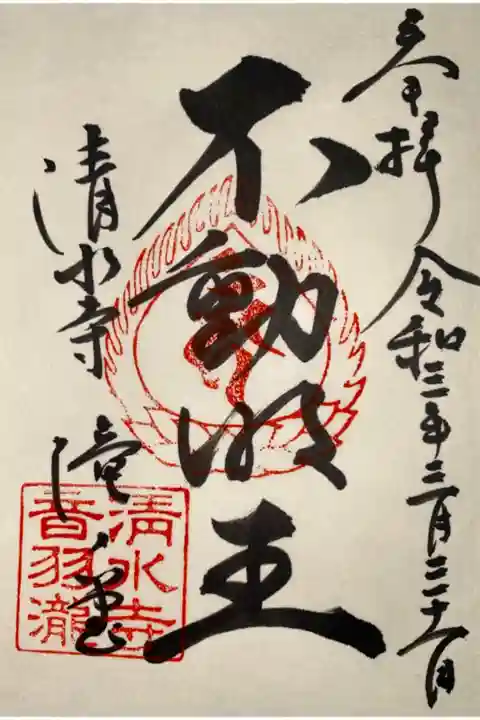 奉拝 令和三年三月三十一日
不動明王
清水寺 滝堂
清水寺
音羽瀧